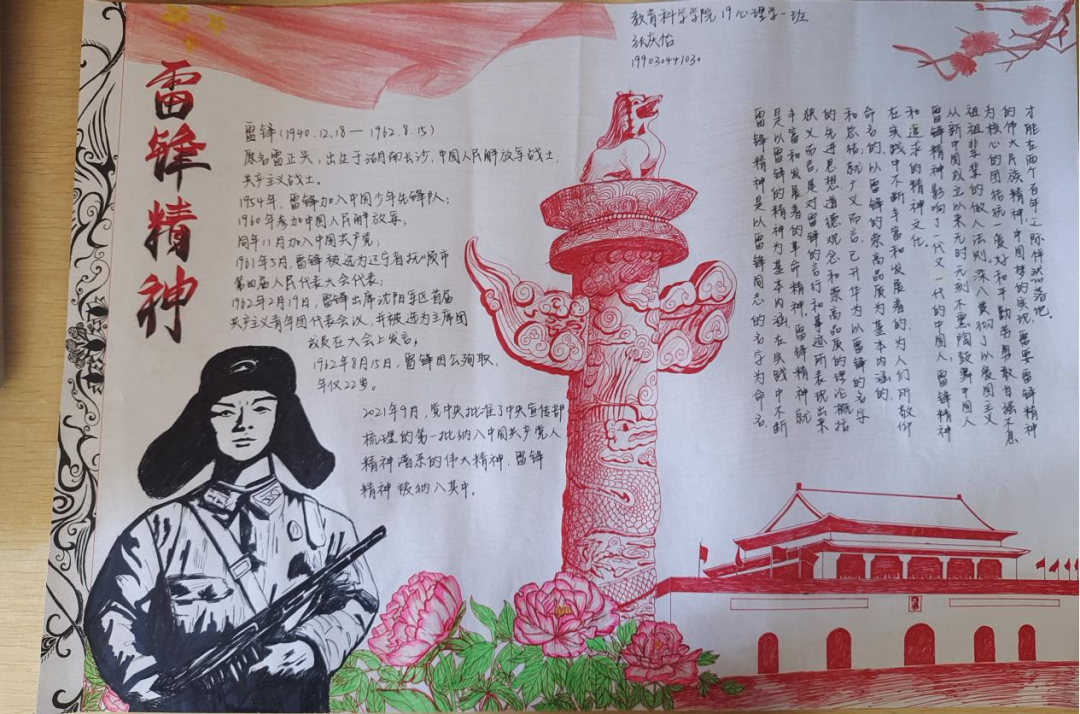 雷锋精神
教育科学学院 19心理学一班
张庆怡
199030441030
雷锋(1940.12.18—1962.8.15)
原名雷正兴,出生于湖南长沙,中国人民解放军战士,
共产主义战士。
1954年,雷锋加入中国少年先锋队;
1960年参加中国人民解放军;
同年11月加入中国共产党;
1961年5月,雷锋被选为辽宁省抚顺市
第四届人民代表大会代表;
1962年2月19日,雷锋出席沈阳军区首届
共产主义青年团代表会议,并被选为主席团
成员在大会上发言;
1962年8月15日,雷锋因公殉职,
年仅22岁。
2021年9月,党中央批准了中央宣传部
梳理的第一批纳入中国共产党人
精神谱系的伟大精神,雷锋
精神被纳入其中。
雷锋精神是以雷锋同志的名字为命名,
是以雷锋的精神为基本内涵,在实践中不断
丰富和发展着的革命精神,雷锋精神就
狭义而言,是对雷锋的言行和事迹所表现出来
的先进思想道德观念和崇高品质的理论概括
和总结;就广义而言,已升华为以雷锋的名字
命名的,以雷锋的崇高品质为基本内涵的,
在实践中不断丰富和发展着的,为人们所敬仰
和追求的精神文化。
雷锋精神影响了一代又一代的中国人,雷锋精神
从新中国成立以来无时无刻不熏陶鼓舞中国人
祖祖辈辈的做人法则,深入贯彻了以爱国主义
为核心的团结统一、爱好和平、勤劳勇敢、自强不息
的伟大民族精神,中国梦的实现,需要雷锋精神
才能在两个百年之际伴 落地。